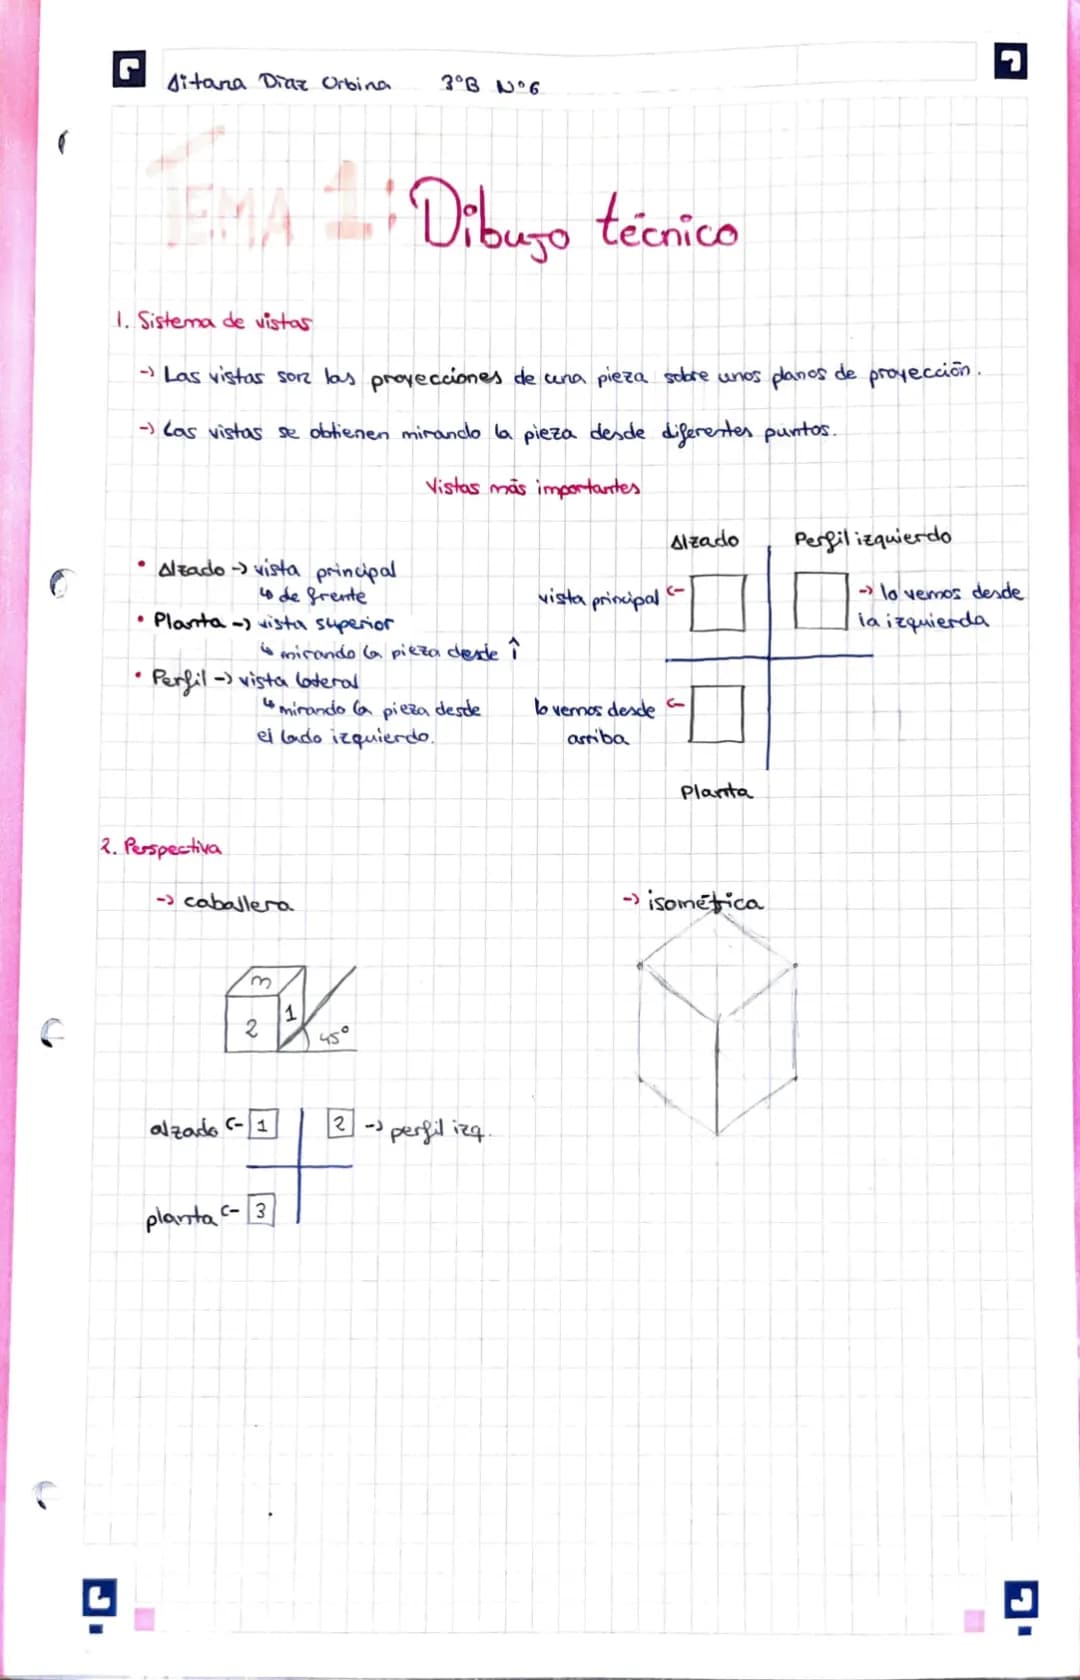 Aitana Díaz Urbina 3ºB Nº6
TEMA 1: Dibujo técnico
1. Sistema de vistas
-> Las vistas son las proyecciones de una pieza sobre unos planos de proyección.
-> Las vistas se obtienen mirando la pieza desde diferentes puntos.
Vistas más importantes
• Alzado -> vista principal
↳ de frente
• Planta -> vista superior
↳ mirando la pieza desde ↑
• Perfil -> vista lateral
↳ mirando la pieza desde
el lado izquierdo.
Alzado Perfil izquierdo
vista principal <- -> lo vemos desde
la izquierda
lo vemos desde <-
arriba
Planta
2. Perspectiva
-> caballera -> isométrica
3
1
2
45º
alzado <- 1 2 -> perfil izq.
planta <- 3